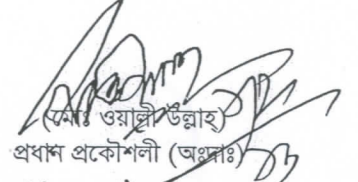 (মোঃ ওয়ালী উল্লাহ)
প্রধান প্রকৌশলী (অঃদাঃ)